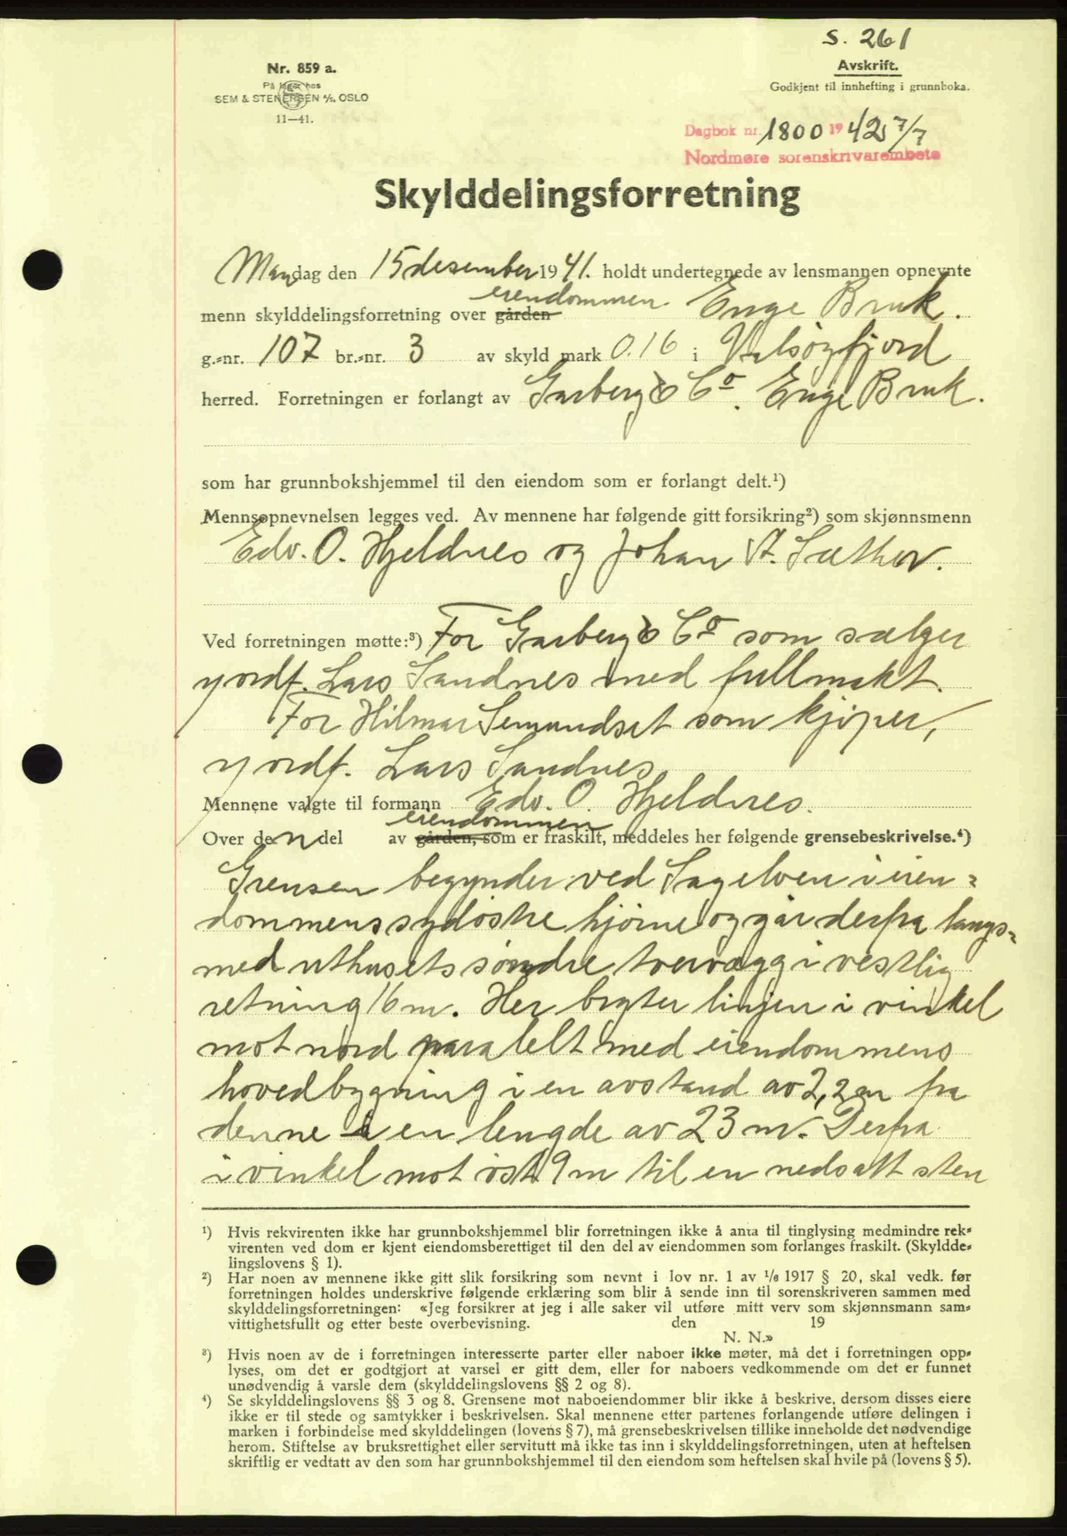 S. 261
Avskrift.
Godkjent til innhefting i grunnboka.
Nr. 859 a.
På lager hos
SEM & STENERSEN A/S. OSLO
11—41.
Dagbok nr. 1800 1942 7/7
Nordmøre sorenskrivarembete
Skylddelingsforretning
Mandag den 15 desember 1941. holdt undertegnede av lensmannen opnevnte
eiendommen
menn skylddelingsforretning over gården Enge Bruk.
g.-nr. 107 br.-nr. 3 av skyld mark 0.16 i Valsøyfjord
herred. Forretningen er forlangt av Garberg & Co. Enge Bruk.
som har grunnbokshjemmel til den eiendom som er forlangt delt.¹)
Mennsopnevnelsen legges ved. Av mennene har følgende gitt forsikring²) som skjønnsmenn
Edv. O. Hjeldnes og Johan St. Sæther.
Ved forretningen møtte:³) For Garberg & Co som sælger
Lars Sandnes med fullmakt.
For Hilmar Semundset som kjøper,
Lars Sandnes
Mennene valgte til formann Edv. O. Hjeldnes.
eiendommen
Over den del av gården, som er fraskilt, meddeles her følgende grensebeskrivelse.⁴)
Grensen begynder ved Sagelven i eien-
dommens sydøstre hjørne og går derfra langs-
med uthusets søndre tvervægg i vestlig
retning 16 m. Her bryter linjen i vinkel
mot nord paralelt med eiendommens
hovedbygning i en avstand av 2,2 m fra
denne i en lengde av 23 m. Derfra
i vinkel mot øst 9 m til en nedsatt sten
¹) Hvis rekvirenten ikke har grunnbokshjemmel blir forretningen ikke å anta til tinglysing medmindre rek-
virenten ved dom er kjent eiendomsberettiget til den del av eiendommen som forlanges fraskilt. (Skyldde-
lingslovens § 1).
²) Har noen av mennene ikke gitt slik forsikring som nevnt i lov nr. 1 av 1/6 1917 § 20, skal vedk. før
forretningen holdes underskrive følgende erklæring som blir å sende inn til sorenskriveren sammen med
skylddelingsforretningen: «Jeg forsikrer at jeg i alle saker vil utføre mitt verv som skjønnsmann sam-
vittighetsfullt og etter beste overbevisning. den 19
N. N.»
³) Hvis noen av de i forretningen interesserte parter eller naboer ikke møter, må det i forretningen opp-
lyses, om det er godtgjort at varsel er gitt dem, eller for naboers vedkommende om det er funnet
unødvendig å varsle dem (skylddelingslovens §§ 2 og 8).
⁴) Se skylddelingslovens §§ 3 og 8. Grensene mot naboeiendommer blir ikke å beskrive, dersom disses eiere
ikke er til stede og samtykker i beskrivelsen. Skal mennene etter partenes forlangende utføre delingen i
marken i forbindelse med skylddelingen (lovens § 7), må grensebeskrivelsen tillike inneholde det nødvendige
herom. Stiftelse av bruksrettighet eller servitutt må ikke tas inn i skylddelingsforretningen, uten at heftelsen
skriftlig er vedtatt av den som har grunnbokshjemmel til den eiendom som heftelsen skal hvile på (lovens § 5).